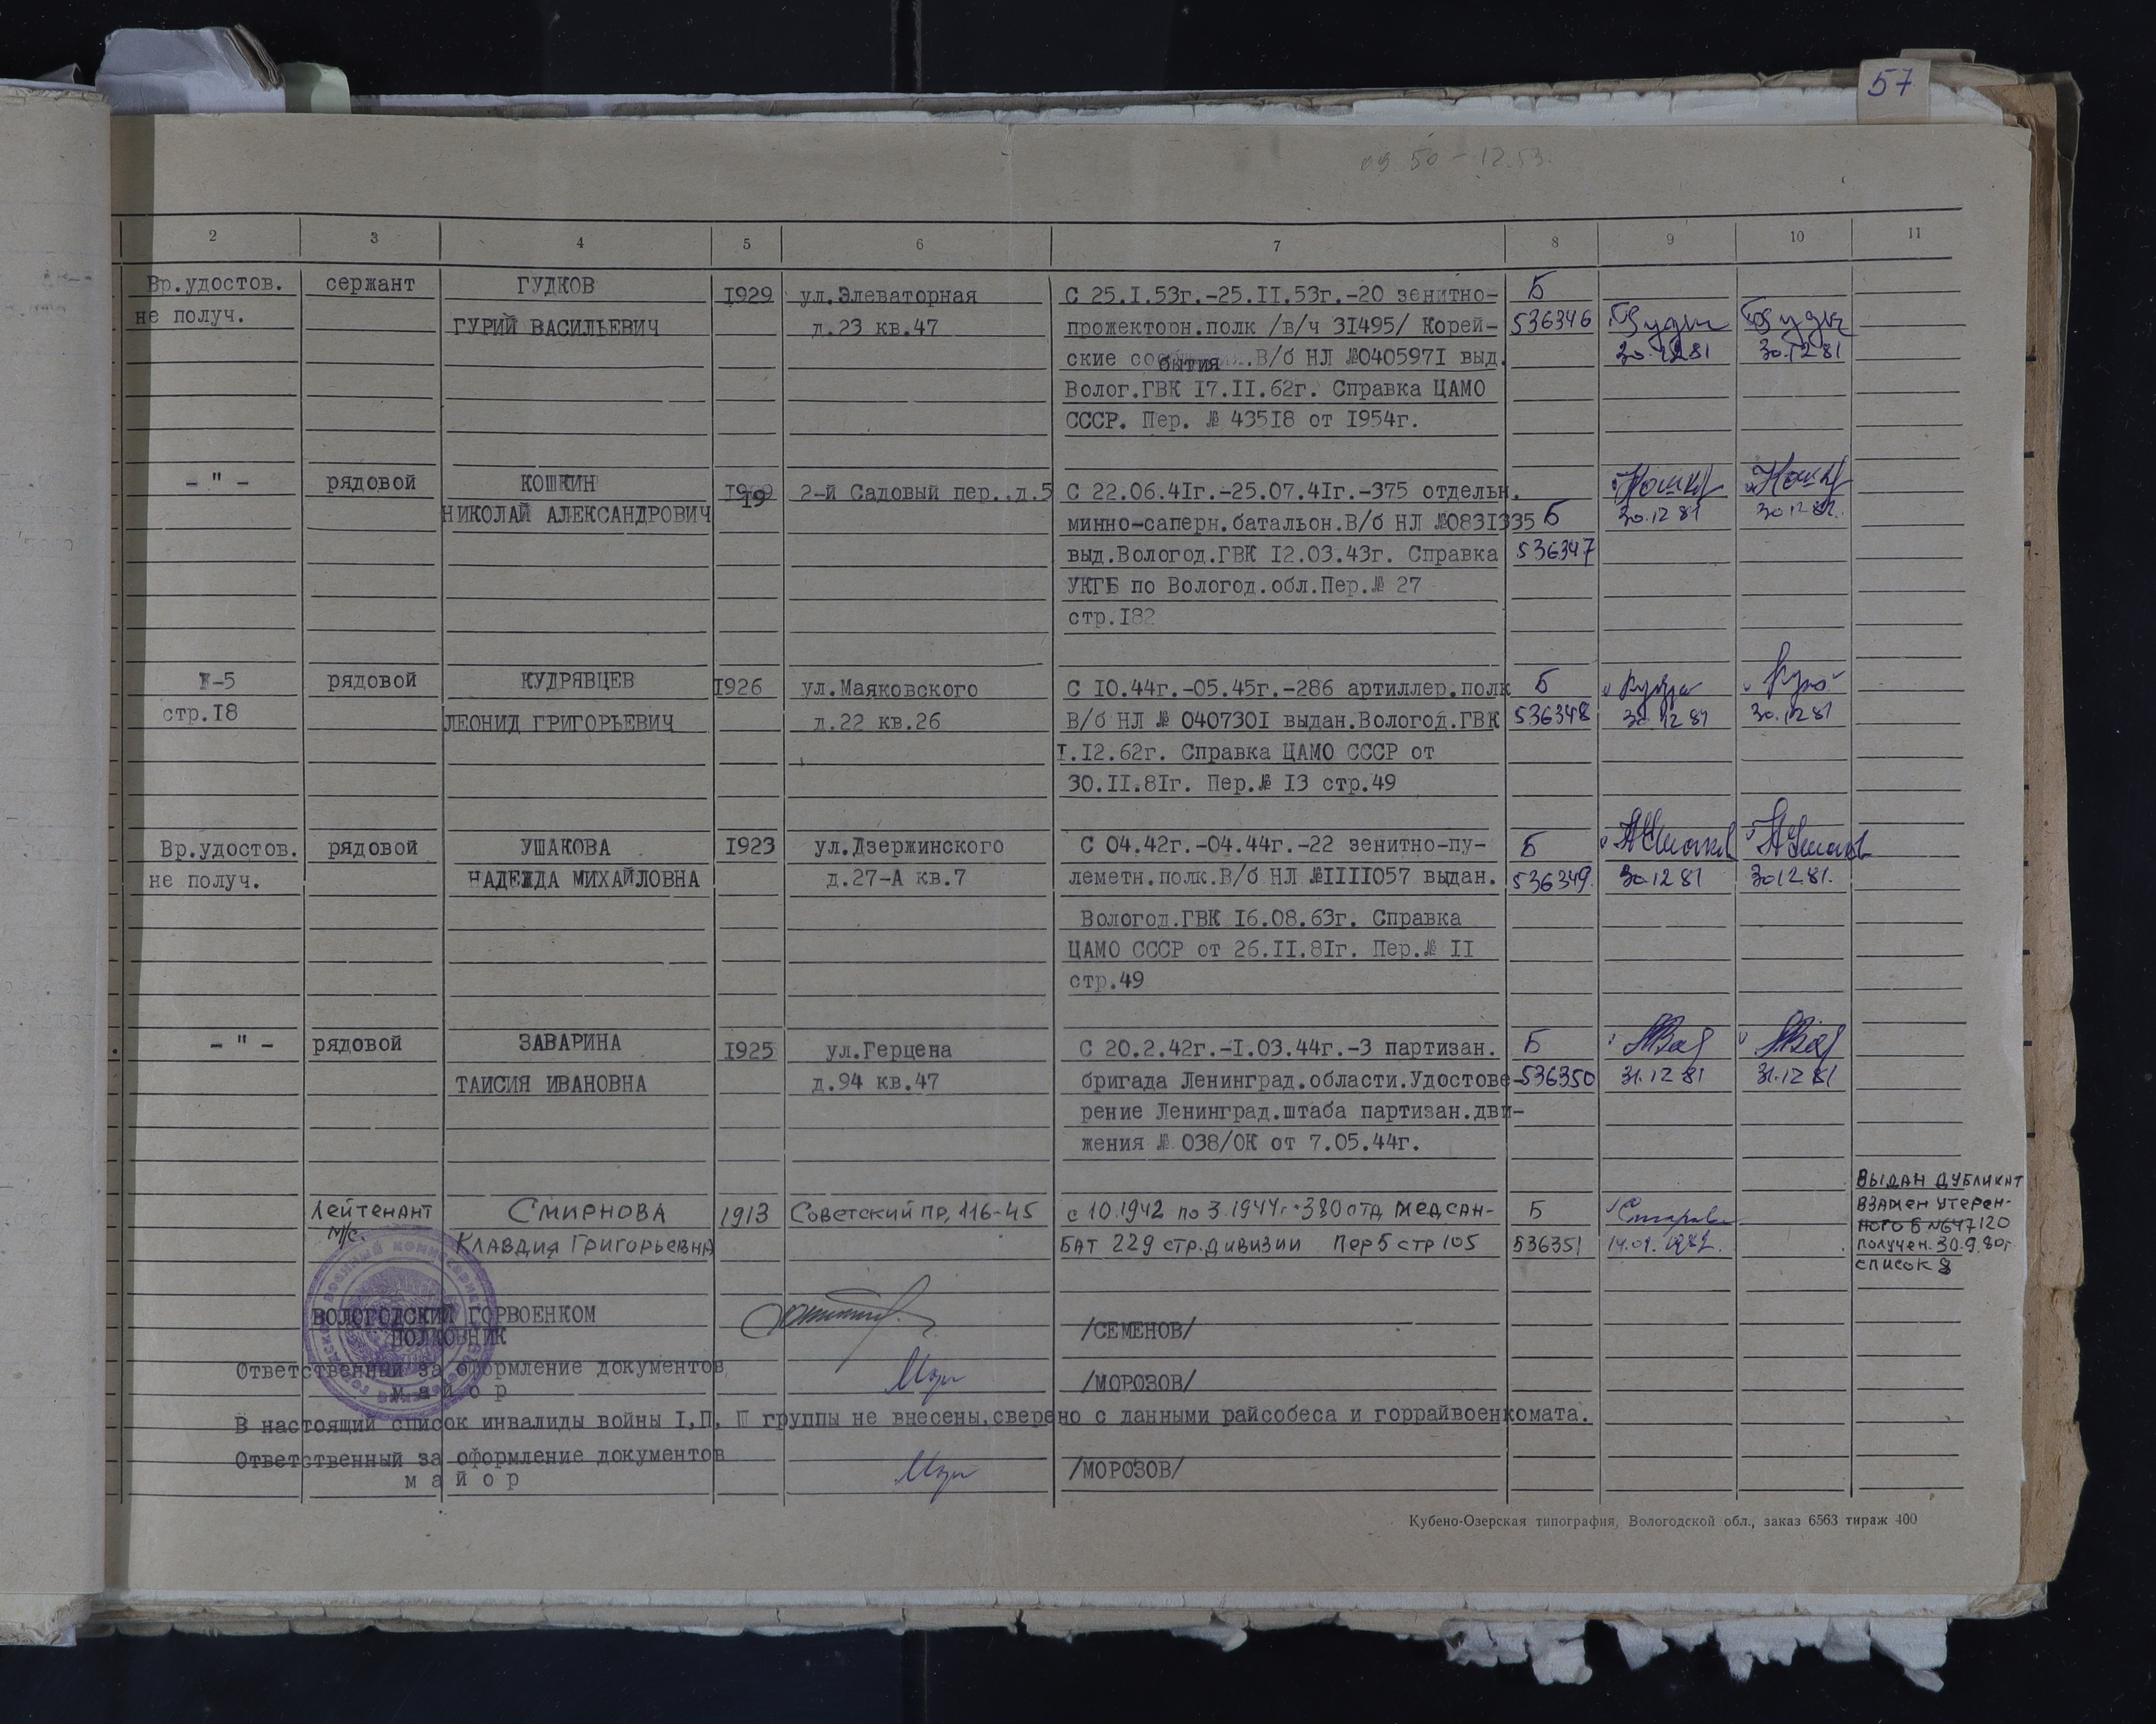 57
2 3 4 5 6 7 8 9 10 11
Вр.удостов. сержант ГУДКОВ 1929 ул.Элеваторная С 25.I.53г.-25.II.53г.-20 зенитно- Б
не получ. ГУРИЙ ВАСИЛЬЕВИЧ д.23 кв.47 прожекторн.полк /в/ч 31495/ Корей- 536346
ские события.В/б НЛ №0405971 выд. 30.12 81 30.12 81
Волог.ГВК I7.II.62г. Справка ЦАМО
СССР. Пер. № 43518 от 1954г.
- " - рядовой КОШКИН 1919 2-й Садовый пер..д.5 С 22.06.41г.-25.07.41г.-375 отдельн.
НИКОЛАЙ АЛЕКСАНДРОВИЧ минно-саперн.батальон.В/б НЛ №0831335 Б 30.12 81 30.12 81.
выд.Вологод.ГВК 12.03.43г. Справка 536347
УКГБ по Вологод.обл.Пер.№ 27
стр.182
рядовой КУДРЯВЦЕВ 1926 ул.Маяковского С 10.44г.-05.45г.-286 артиллер.полк Б
стр.18 ЛЕОНИД ГРИГОРЬЕВИЧ д.22 кв.26 В/б НЛ № 0407301 выдан.Вологод.ГВК 536348 30.12 81 30.12 81
I.I2.62г. Справка ЦАМО СССР от
30.II.8Iг. Пер.№ 13 стр.49
Вр.удостов. рядовой УШАКОВА 1923 ул.Дзержинского С 04.42г.-04.44г.-22 зенитно-пу- Б
не получ. НАДЕЖДА МИХАЙЛОВНА д.27-А кв.7 леметн.полк.В/б НЛ №IIII057 выдан. 536349. 30.12 81 30.12 81.
Вологод.ГВК 16.08.63г. Справка
ЦАМО СССР от 26.II.8Iг. Пер.№ II
стр.49
- " - рядовой ЗАВАРИНА 1925 ул.Герцена С 20.2.42г.-I.03.44г.-3 партизан. Б
ТАИСИЯ ИВАНОВНА д.94 кв.47 бригада Ленинград.области.Удостове- 536350 31.12 81 31.12 81
рение Ленинград.штаба партизан.дви-
жения № 038/ОК от 7.05.44г.
Лейтенант Смирнова 1913 Советский пр, 116-45 с 10.1942 по 3.1944г.-380 отд медсан- Б
м/с. Клавдия Григорьевна бат 229 стр.дивизии Пер 5 стр 105 536351 14.01.1982.
ВЫДАН ДУБЛИКАТ
взамен утерен-
ного Б №647120
получен.30.9.80г.
список 8
ВОЛОГОДСКИЙ ГОРВОЕНКОМ
ПОЛКОВНИК /СЕМЕНОВ/
Ответственный за оформление документов
майор /МОРОЗОВ/
В настоящий список инвалиды войны I,П, Ш группы не внесены,сверено с данными райсобеса и горрайвоенкомата.
Ответственный за оформление документов
майор /МОРОЗОВ/
Кубено-Озерская типография, Вологодской обл., заказ 6563 тираж 400